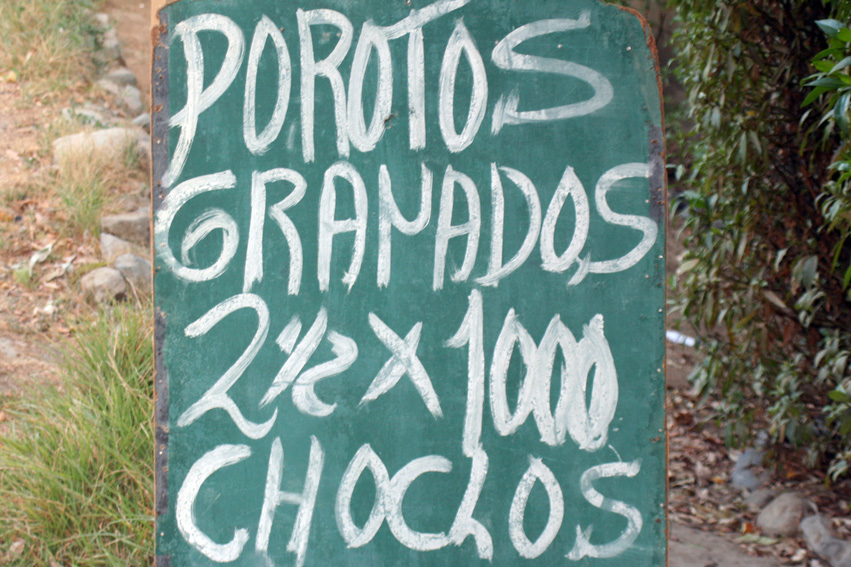 POROTOS
GRANADOS
2 1/2 X 1000
CHOCLOS